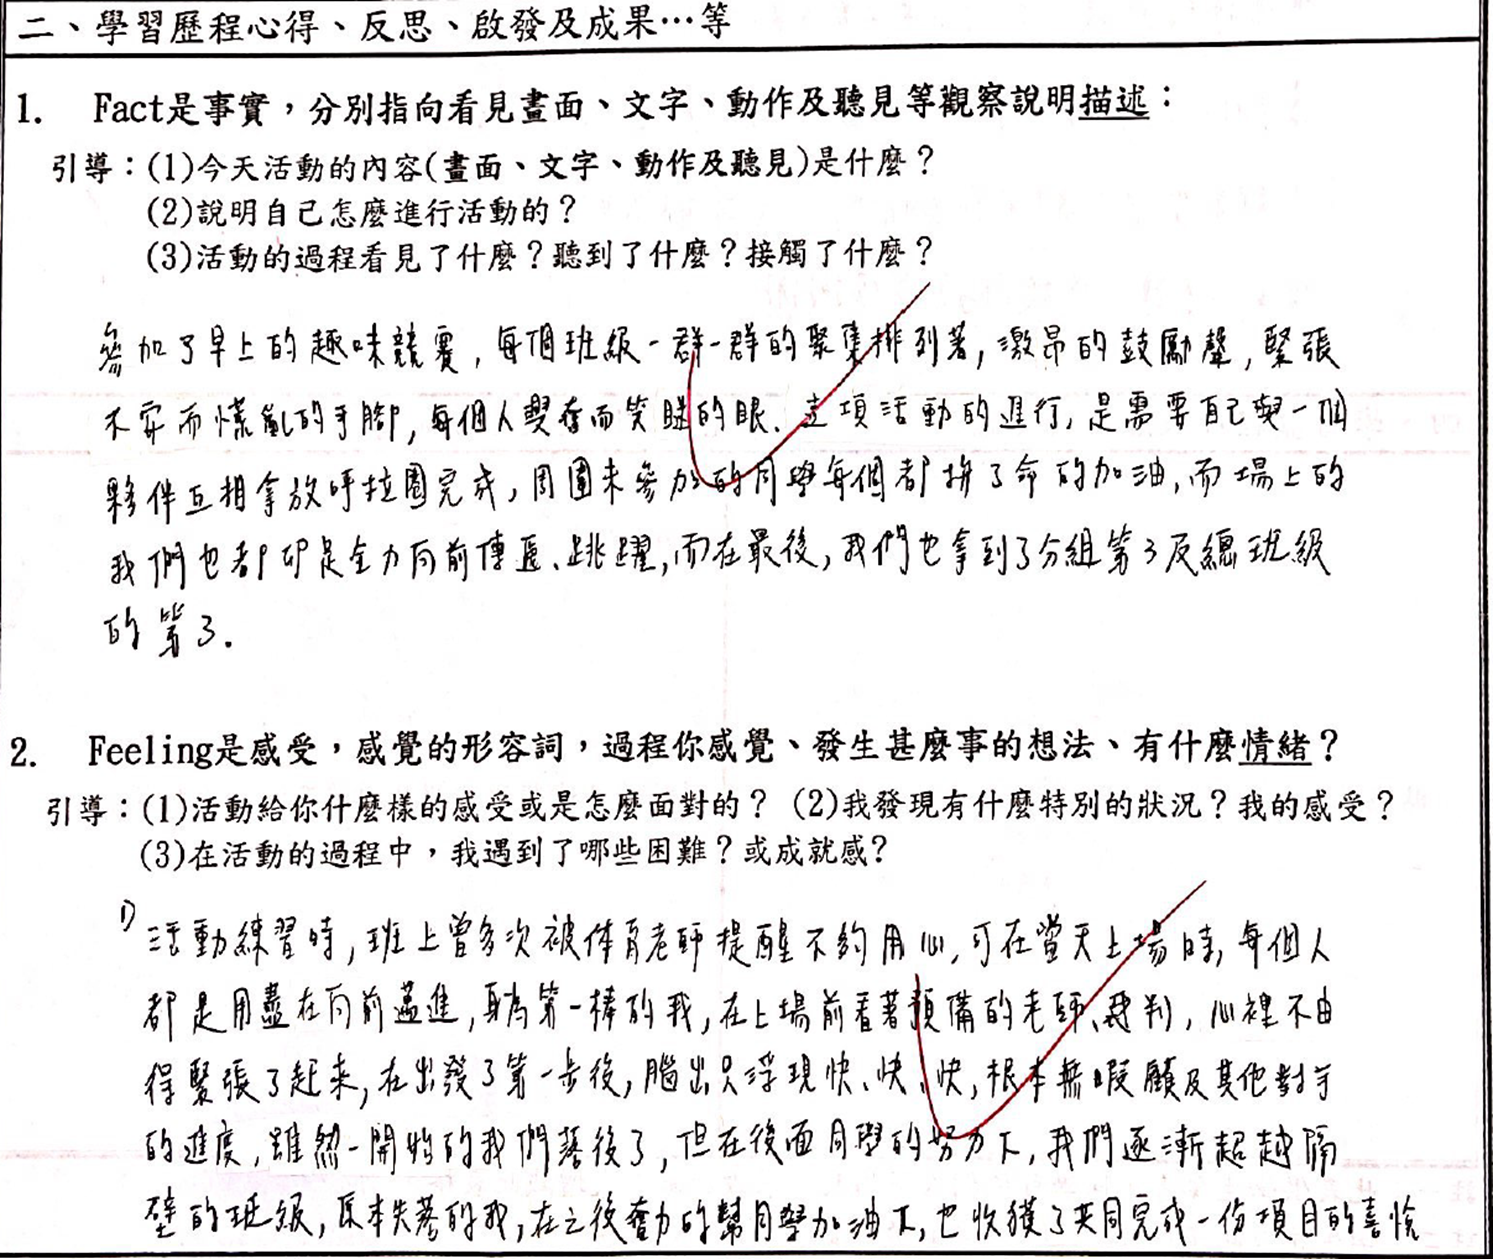 二、學習歷程心得、反思、啟發及成果…等
1. Fact是事實，分別指向看見畫面、文字、動作及聽見等觀察說明描述：
引導：(1)今天活動的內容(畫面、文字、動作及聽見)是什麼？
(2)說明自己怎麼進行活動的？
(3)活動的過程看見了什麼？聽到了什麼？接觸了什麼？
參加了早上的趣味競賽，每個班級一群一群的聚集排列著，激昂的鼓勵聲，緊張
不安而慌亂的手腳，每個人興奮而笑瞇的眼、這項活動的進行，是需要自己與一個
夥伴互相拿放呼拉圈完成，周圍未參加的同學每個都拚了命的加油，而場上的
我們也都卯足全力向前傳遞、跳躍，而在最後，我們也拿到了分組第3及總班級
的第3.
2. Feeling是感受，感覺的形容詞，過程你感覺、發生甚麼事的想法、有什麼情緒？
引導：(1)活動給你什麼樣的感受或是怎麼面對的？ (2)我發現有什麼特別的狀況？我的感受？
(3)在活動的過程中，我遇到了哪些困難？或成就感?
1) 活動練習時，班上曾多次被體育老師提醒不夠用心，可在當天上場時，每個人
都是用盡在向前邁進，身為第一棒的我，在上場前看著預備的老師、裁判，心裡不由
得緊張了起來，在出發了第一步後，腦出只浮現快、快、快，根本無暇顧及其他對手
的進度，雖然一開始的我們落後了，但在後面同學的努力下，我們逐漸超越隔
壁的班級，原本失落的我，在之後奮力的幫同學加油下，也收穫了共同完成一份項目的喜悅